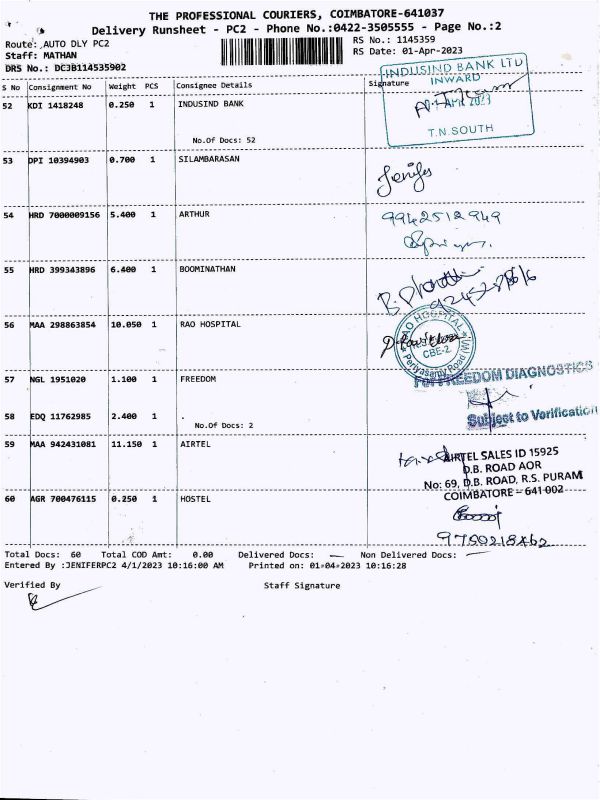 THE PROFESSIONAL COURIERS, COIMBATORE-641037
Delivery Runsheet - PC2 - Phone No.:0422-3505555 - Page No.:2
Route: ,AUTO DLY PC2
RS No.: 1145359
Staff: MATHAN
RS Date: 01-Apr-2023
DRS No.: DC3B114535902
S No Consignment No Weight PCS Consignee Details Signature
52 KDI 1418248 0.250 1 INDUSIND BANK
No.Of Docs: 52
INDUSIND BANK LTD
INWARD
APR 2023
T.N.SOUTH
53 DPI 10394903 0.700 1 SILAMBARASAN
Jenifer
54 HRD 7000009156 5.400 1 ARTHUR
9942512949
55 HRD 399343896 6.400 1 BOOMINATHAN
56 MAA 298863854 10.050 1 RAO HOSPITAL
RAO HOSPITAL
CBE-2
Periyasamy Road
57 NGL 1951020 1.100 1 FREEDOM
For FREEDOM DIAGNOSTICS
58 EDQ 11762985 2.400 1 .
No.Of Docs: 2
Subject to Verification
59 MAA 942431081 11.150 1 AIRTEL
AIRTEL SALES ID 15925
D.B. ROAD AOR
No: 69, D.B. ROAD, R.S. PURAM
COIMBATORE - 641 002
60 AGR 700476115 0.250 1 HOSTEL
Total Docs: 60 Total COD Amt: 0.00 Delivered Docs: — Non Delivered Docs: —
Entered By :JENIFERPC2 4/1/2023 10:16:00 AM Printed on: 01-04-2023 10:16:28
Verified By Staff Signature